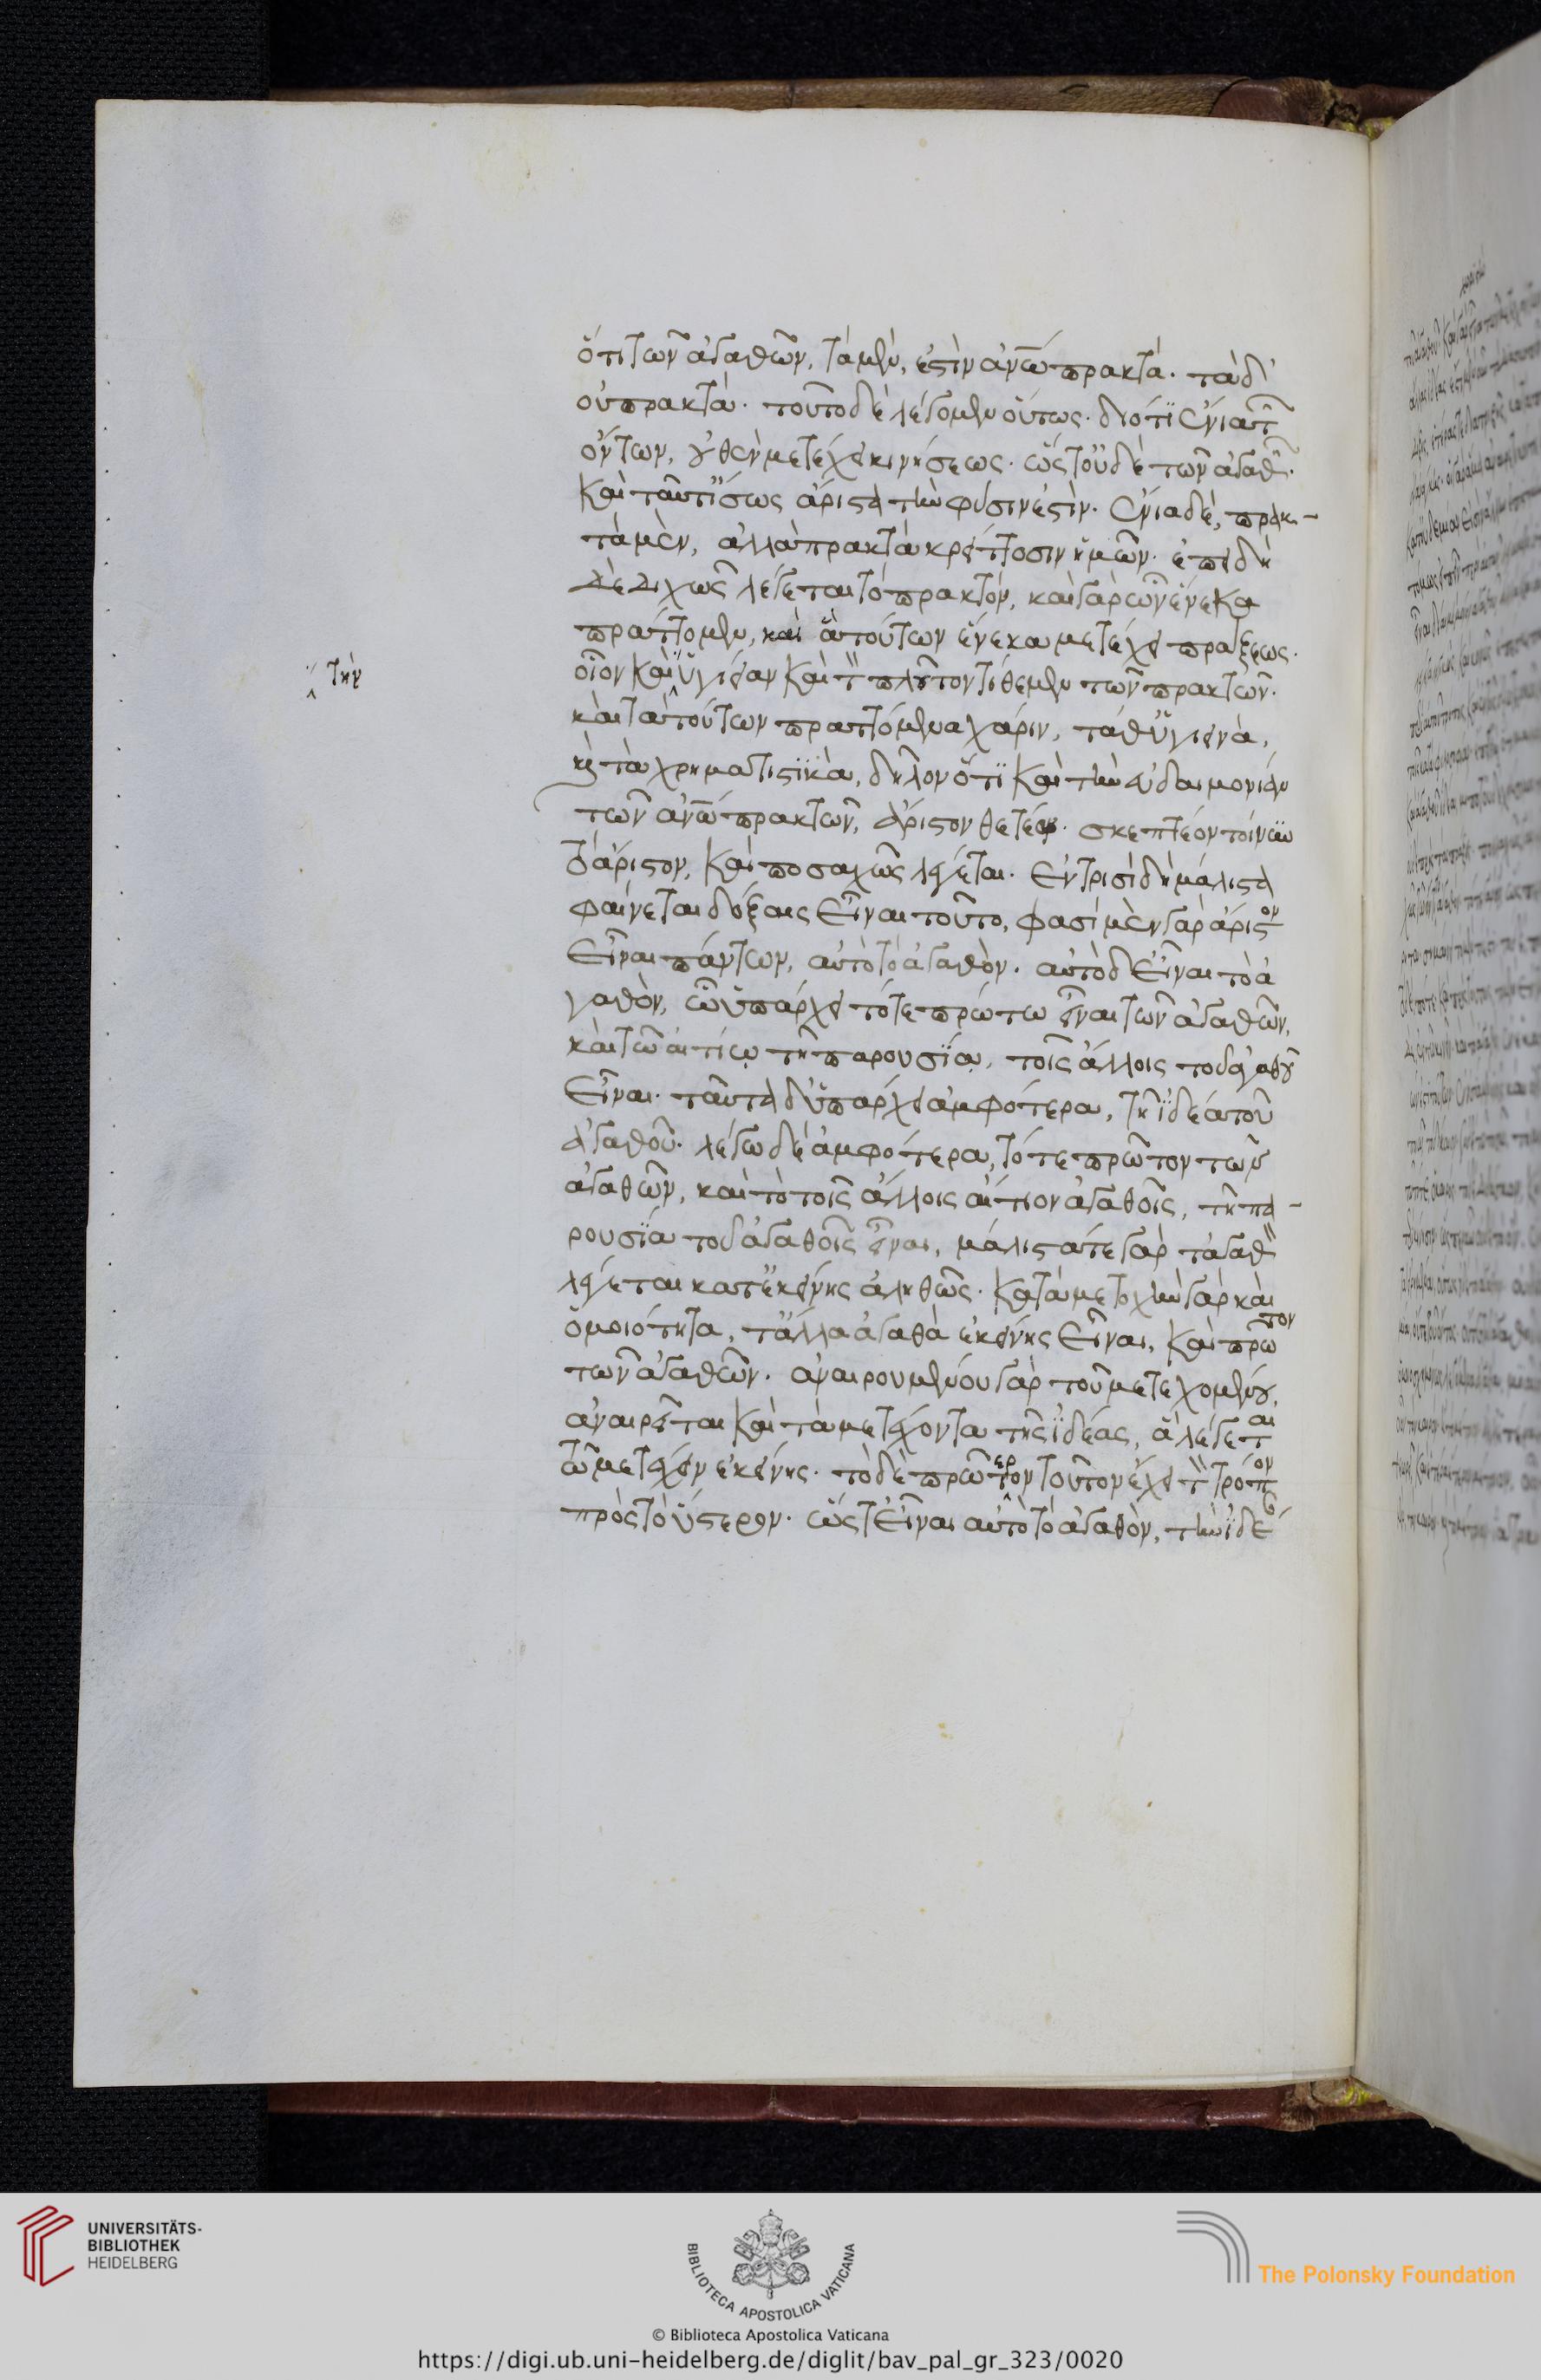 ὅτι τῶν ἀγαθῶν, τὰ μὲν, ἐστὶν ἀνῶ πρακτά. τὰ δ'
οὐ πρακτά. τοῦτο δὲ λέγομεν οὕτως. διότι ἔνια τ
ὄντων, οὐθὲν μετέχει κινήσεως. ὥστ' οὐδὲ τῶν ἀγαθ.
καὶ ταῦτ' ἴσως ἄριστα τὴν φύσιν ἐστὶν. ἔνια δὲ, πρακ-
τὰ μὲν, ἀλλὰ πρακτὰ κρείττοσιν ἡμῶν. ἐπειδὴ
δὲ διχῶς λέγεται τὸ πρακτόν, καὶ γὰρ ὧν ἕνεκα
πράττομεν, καὶ ἃ τούτων ἕνεκα μετέχει πράξεως.
τὴν
οἷον καὶ ὑγίειαν καὶ τ πλοῦτον τίθεμεν τῶν πρακτῶν.
καὶ τὰ τούτων πραττόμενα χάριν, τά θ' ὑγιεινὰ,
κ τὰ χρηματιστικὰ, δῆλον ὅτι καὶ τὴν εὐδαιμονίαν
τῶν ἀνῶ πρακτῶν, ἄριστον θετέον. σκεπτέον τοίνυν
τὸ ἄριστον, καὶ ποσαχῶς λέγεται. ἐν τρισὶ δὴ μάλιστα
φαίνεται δόξαις εἶναι τοῦτο, φασὶ μὲν γὰρ ἄριστον
εἶναι πάντων, αὐτὸ τὸ ἀγαθὸν. αὐτὸ δ' εἶναι τὸ ἀ
γαθὸν, ὧ ὑπάρχει τό τε πρώτω εἶναι τῶν ἀγαθῶν,
καὶ τῶ αἰτίῳ τῆ παρουσίᾳ, τοῖς ἄλλοις τοῦ ἀγαθοῦ
εἶναι. ταῦτα δ' ὑπάρχει ἀμφότερα, τῆ ἰδέα τοῦ
ἀγαθοῦ. λέγω δὲ ἀμφότερα, τό τε πρῶτον τῶν
ἀγαθῶν, καὶ τὸ τοῖς ἄλλοις αἴτιον ἀγαθοῖς, τῆ πα-
ρουσία τοῦ ἀγαθοῖς εἶναι, μάλιστά τε γὰρ τἀγαθ
λέγεται κατ' ἐκείνης ἀληθῶς. κατὰ μετοχὴν γὰρ καὶ
ὁμοιότητα, τἄλλα ἀγαθὰ ἐκείνης εἶναι, καὶ πρῶτον
τῶν ἀγαθῶν. ἀναιρουμένου γὰρ τοῦ μετεχομένου,
ἀναιρεῖται καὶ τὰ μετέχοντα τῆς ἰδέας, ἃ λέγεται
τῶ μετέχειν ἐκείνης. τὸ δὲ πρῶτερον τοῦτον ἔχει τ τρόπον
πρὸς τὸ ὕστερον. ὥστ' εἶναι αὐτὸ τὸ ἀγαθὸν, τὴν ἰδέ
UNIVERSITÄTS-
BIBLIOTHEK
HEIDELBERG
BIBLIOTECA APOSTOLICA VATICANA
The Polonsky Foundation
© Biblioteca Apostolica Vaticana
https://digi.ub.uni-heidelberg.de/diglit/bav_pal_gr_323/0020